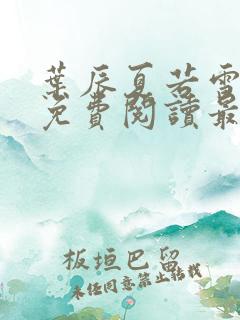 葉辰夏若雪
免費閱讀最
板垣巴留
未经同意禁止转载